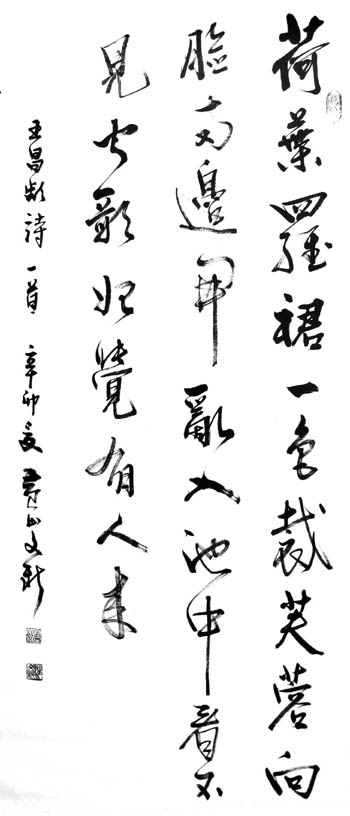 荷葉羅裙一色裁芙蓉向
臉兩邊開亂入池中看不
見聞歌始覺有人来
王昌龄詩一首 辛卯夏